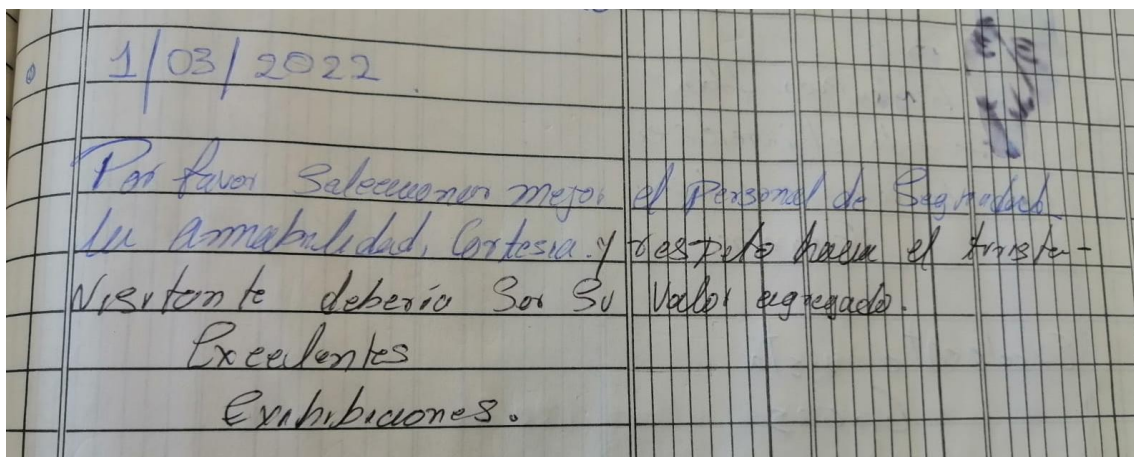 1/03/2022
Por favor Seleccionar mejor el personal de Seguridad.
La Amabilidad, Cortesía y respeto hacia el turista-
Visitante debería Ser Su Valor agregado.
Excelentes
Exhibiciones.